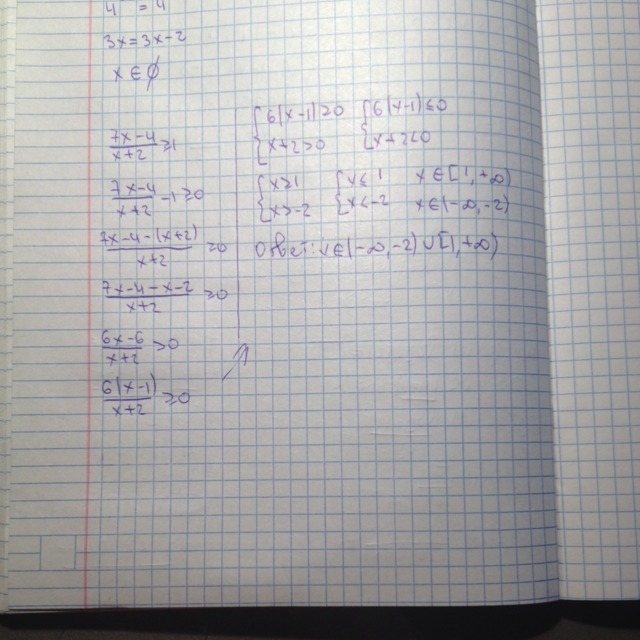 4 = 4
3x = 3x - 2
x ∈ ∅
(7x - 4)/(x + 2) ≥ 1
(7x - 4)/(x + 2) - 1 ≥ 0
(7x - 4 - (x + 2))/(x + 2) ≥ 0
(7x - 4 - x - 2)/(x + 2) ≥ 0
(6x - 6)/(x + 2) ≥ 0
6(x - 1)/(x + 2) ≥ 0
{ 6(x - 1) ≥ 0 { 6(x - 1) ≤ 0
{ x + 2 > 0 { x + 2 < 0
{ x ≥ 1 { x ≤ 1 x ∈ [1, +∞)
{ x > -2 { x < -2 x ∈ (-∞, -2)
Ответ: x ∈ (-∞, -2) ∪ [1, +∞)